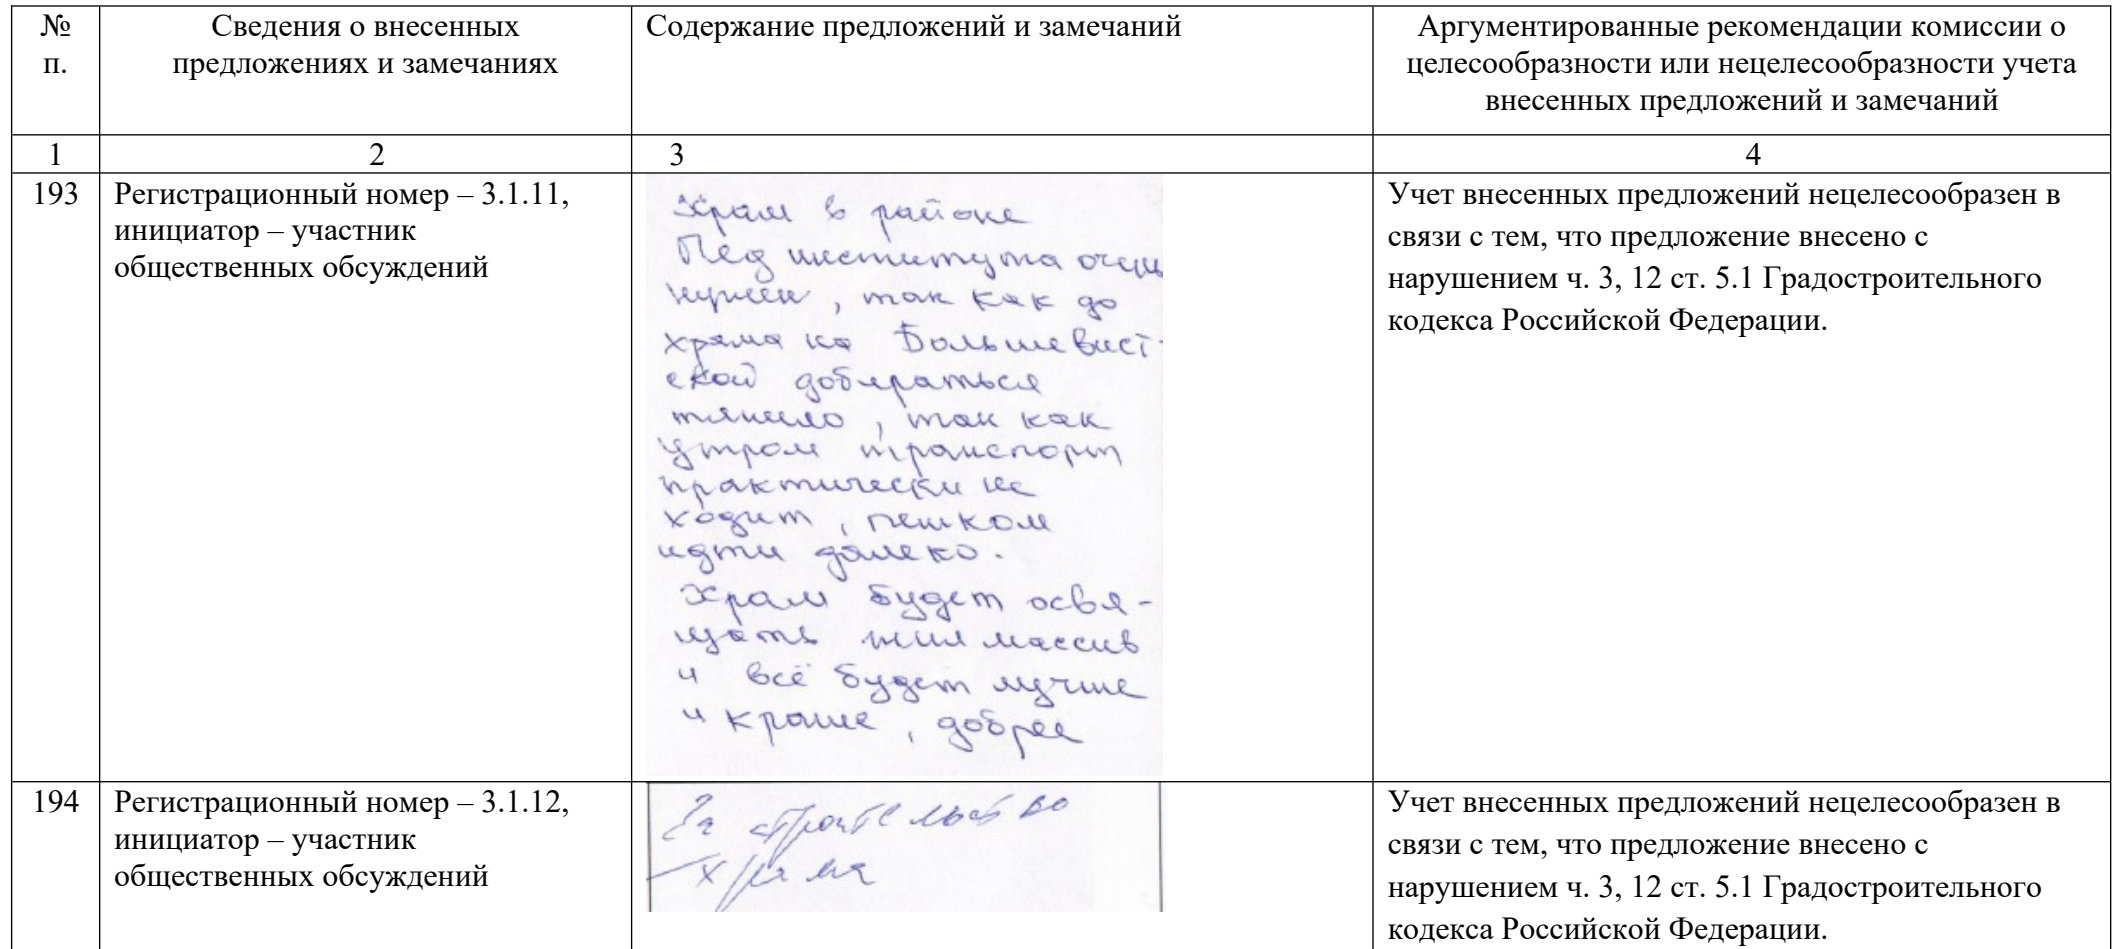 № п.
Сведения о внесенных предложениях и замечаниях
Содержание предложений и замечаний
Аргументированные рекомендации комиссии о целесообразности или нецелесообразности учета внесенных предложений и замечаний
1
2
3
4
193
Регистрационный номер – 3.1.11,
инициатор – участник
общественных обсуждений
Храм в районе
Пед института очень
нужен, так как до
храма на Большевист-
ской добираться
тяжело, так как
утром транспорт
практически не
ходит, пешком
идти далеко.
Храм будет освя-
щать жил массив
и всё будет лучше
и краше, добрее
Учет внесенных предложений нецелесообразен в
связи с тем, что предложение внесено с
нарушением ч. 3, 12 ст. 5.1 Градостроительного
кодекса Российской Федерации.
194
Регистрационный номер – 3.1.12,
инициатор – участник
общественных обсуждений
За строительство
храма
Учет внесенных предложений нецелесообразен в
связи с тем, что предложение внесено с
нарушением ч. 3, 12 ст. 5.1 Градостроительного
кодекса Российской Федерации.